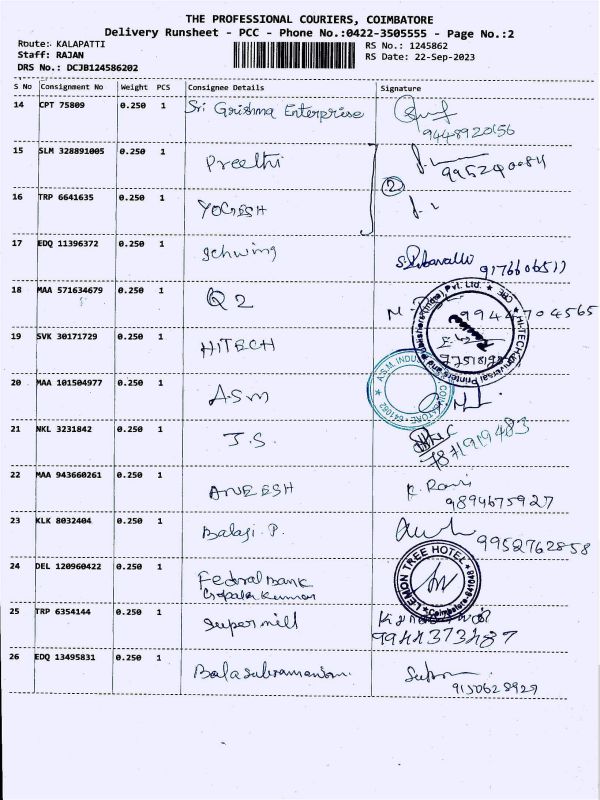 THE PROFESSIONAL COURIERS, COIMBATORE
Delivery Runsheet - PCC - Phone No.:0422-3505555 - Page No.:2
Route: KALAPATTI RS No.: 1245862
Staff: RAJAN RS Date: 22-Sep-2023
DRS No.: DCJB124586202
S No Consignment No Weight PCS Consignee Details Signature
14 CPT 75809 0.250 1 Sri Grishma Enterprise
9448920156
15 SLM 328891005 0.250 1 Preethi
9952400084
2
16 TRP 6641635 0.250 1 YOGESH
17 EDQ 11396372 0.250 1 Schwing
9176606517
18 MAA 571634679 0.250 1 Q 2
9944704565
19 SVK 30171729 0.250 1 HITECH
20 MAA 101504977 0.250 1 ASM
21 NKL 3231842 0.250 1 J.S.
7871919483
22 MAA 943660261 0.250 1 ANEESH K. Ravi
9894675927
23 KLK 8032404 0.250 1 Balaji. P.
9952762858
24 DEL 120960422 0.250 1 Federal Bank
Gopala Kumar
LEMON TREE HOTEL
Coimbatore-641048
25 TRP 6354144 0.250 1 Supermill
9944373487
26 EDQ 13495831 0.250 1 Balasubramaniam.
9150628929